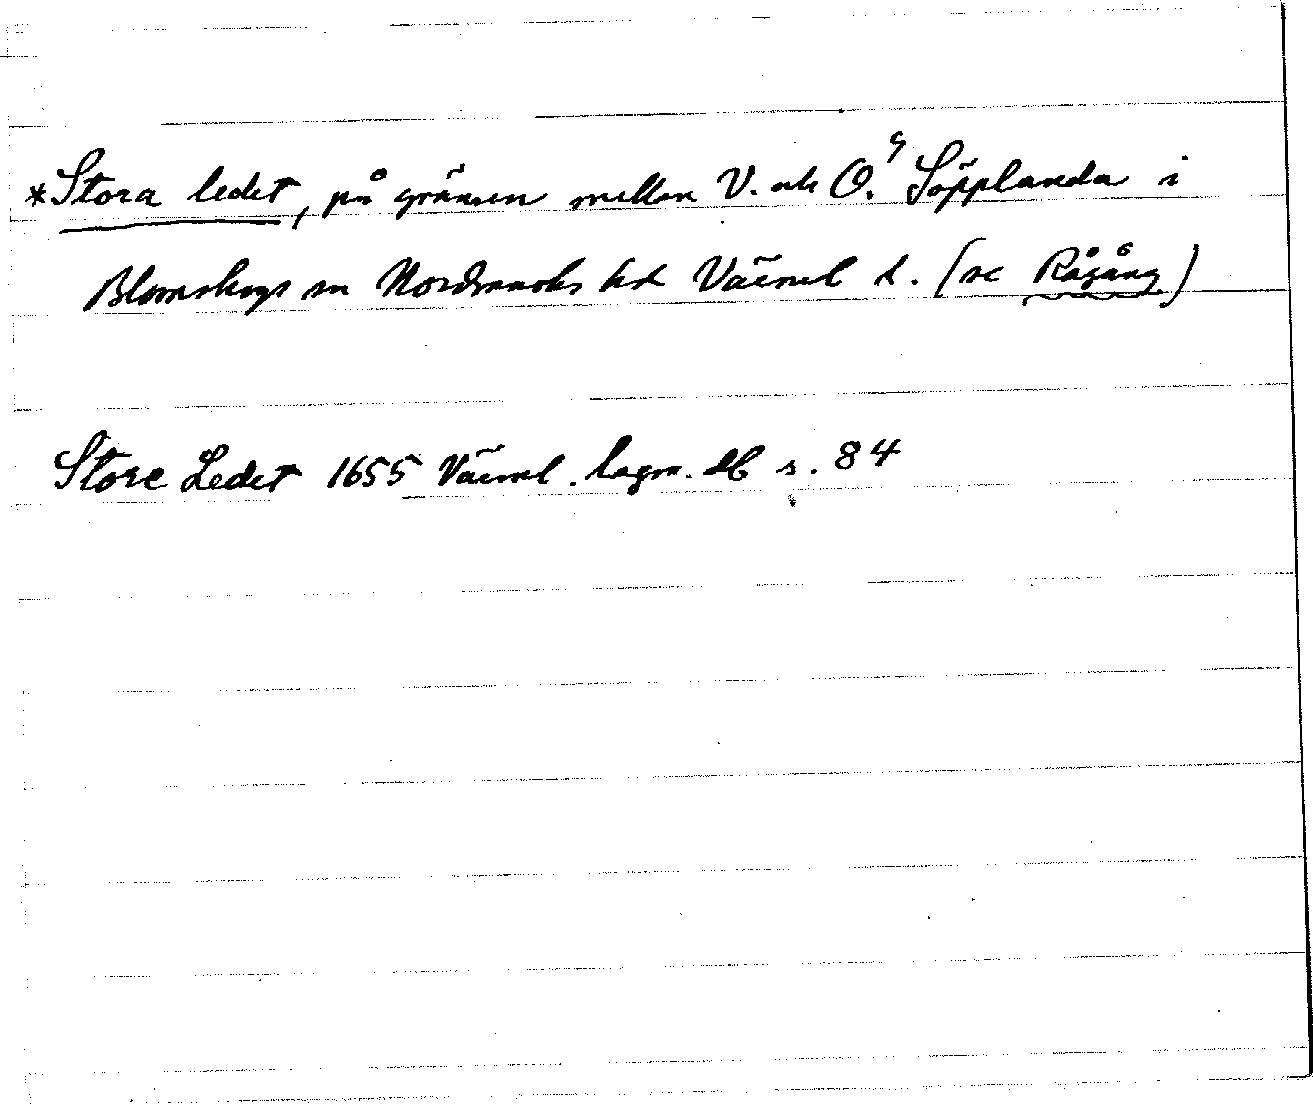 *Stora ledet, på gränsen mellan V. och Ö. Söpplanda i
Blomskogs sn Nordmarks hd Värml l. (se Rågång)
Store Ledet 1655 Värml. lagm. db s. 84